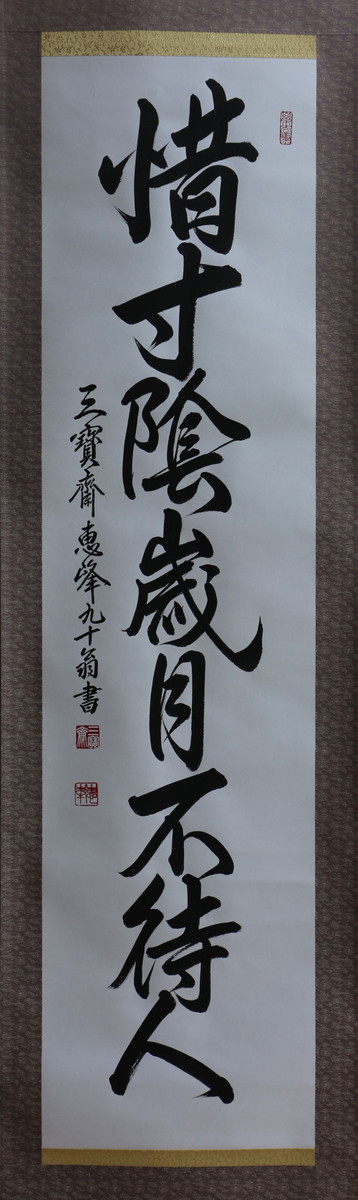 惜寸陰歳月不待人
三寶齋恵峰九十翁書